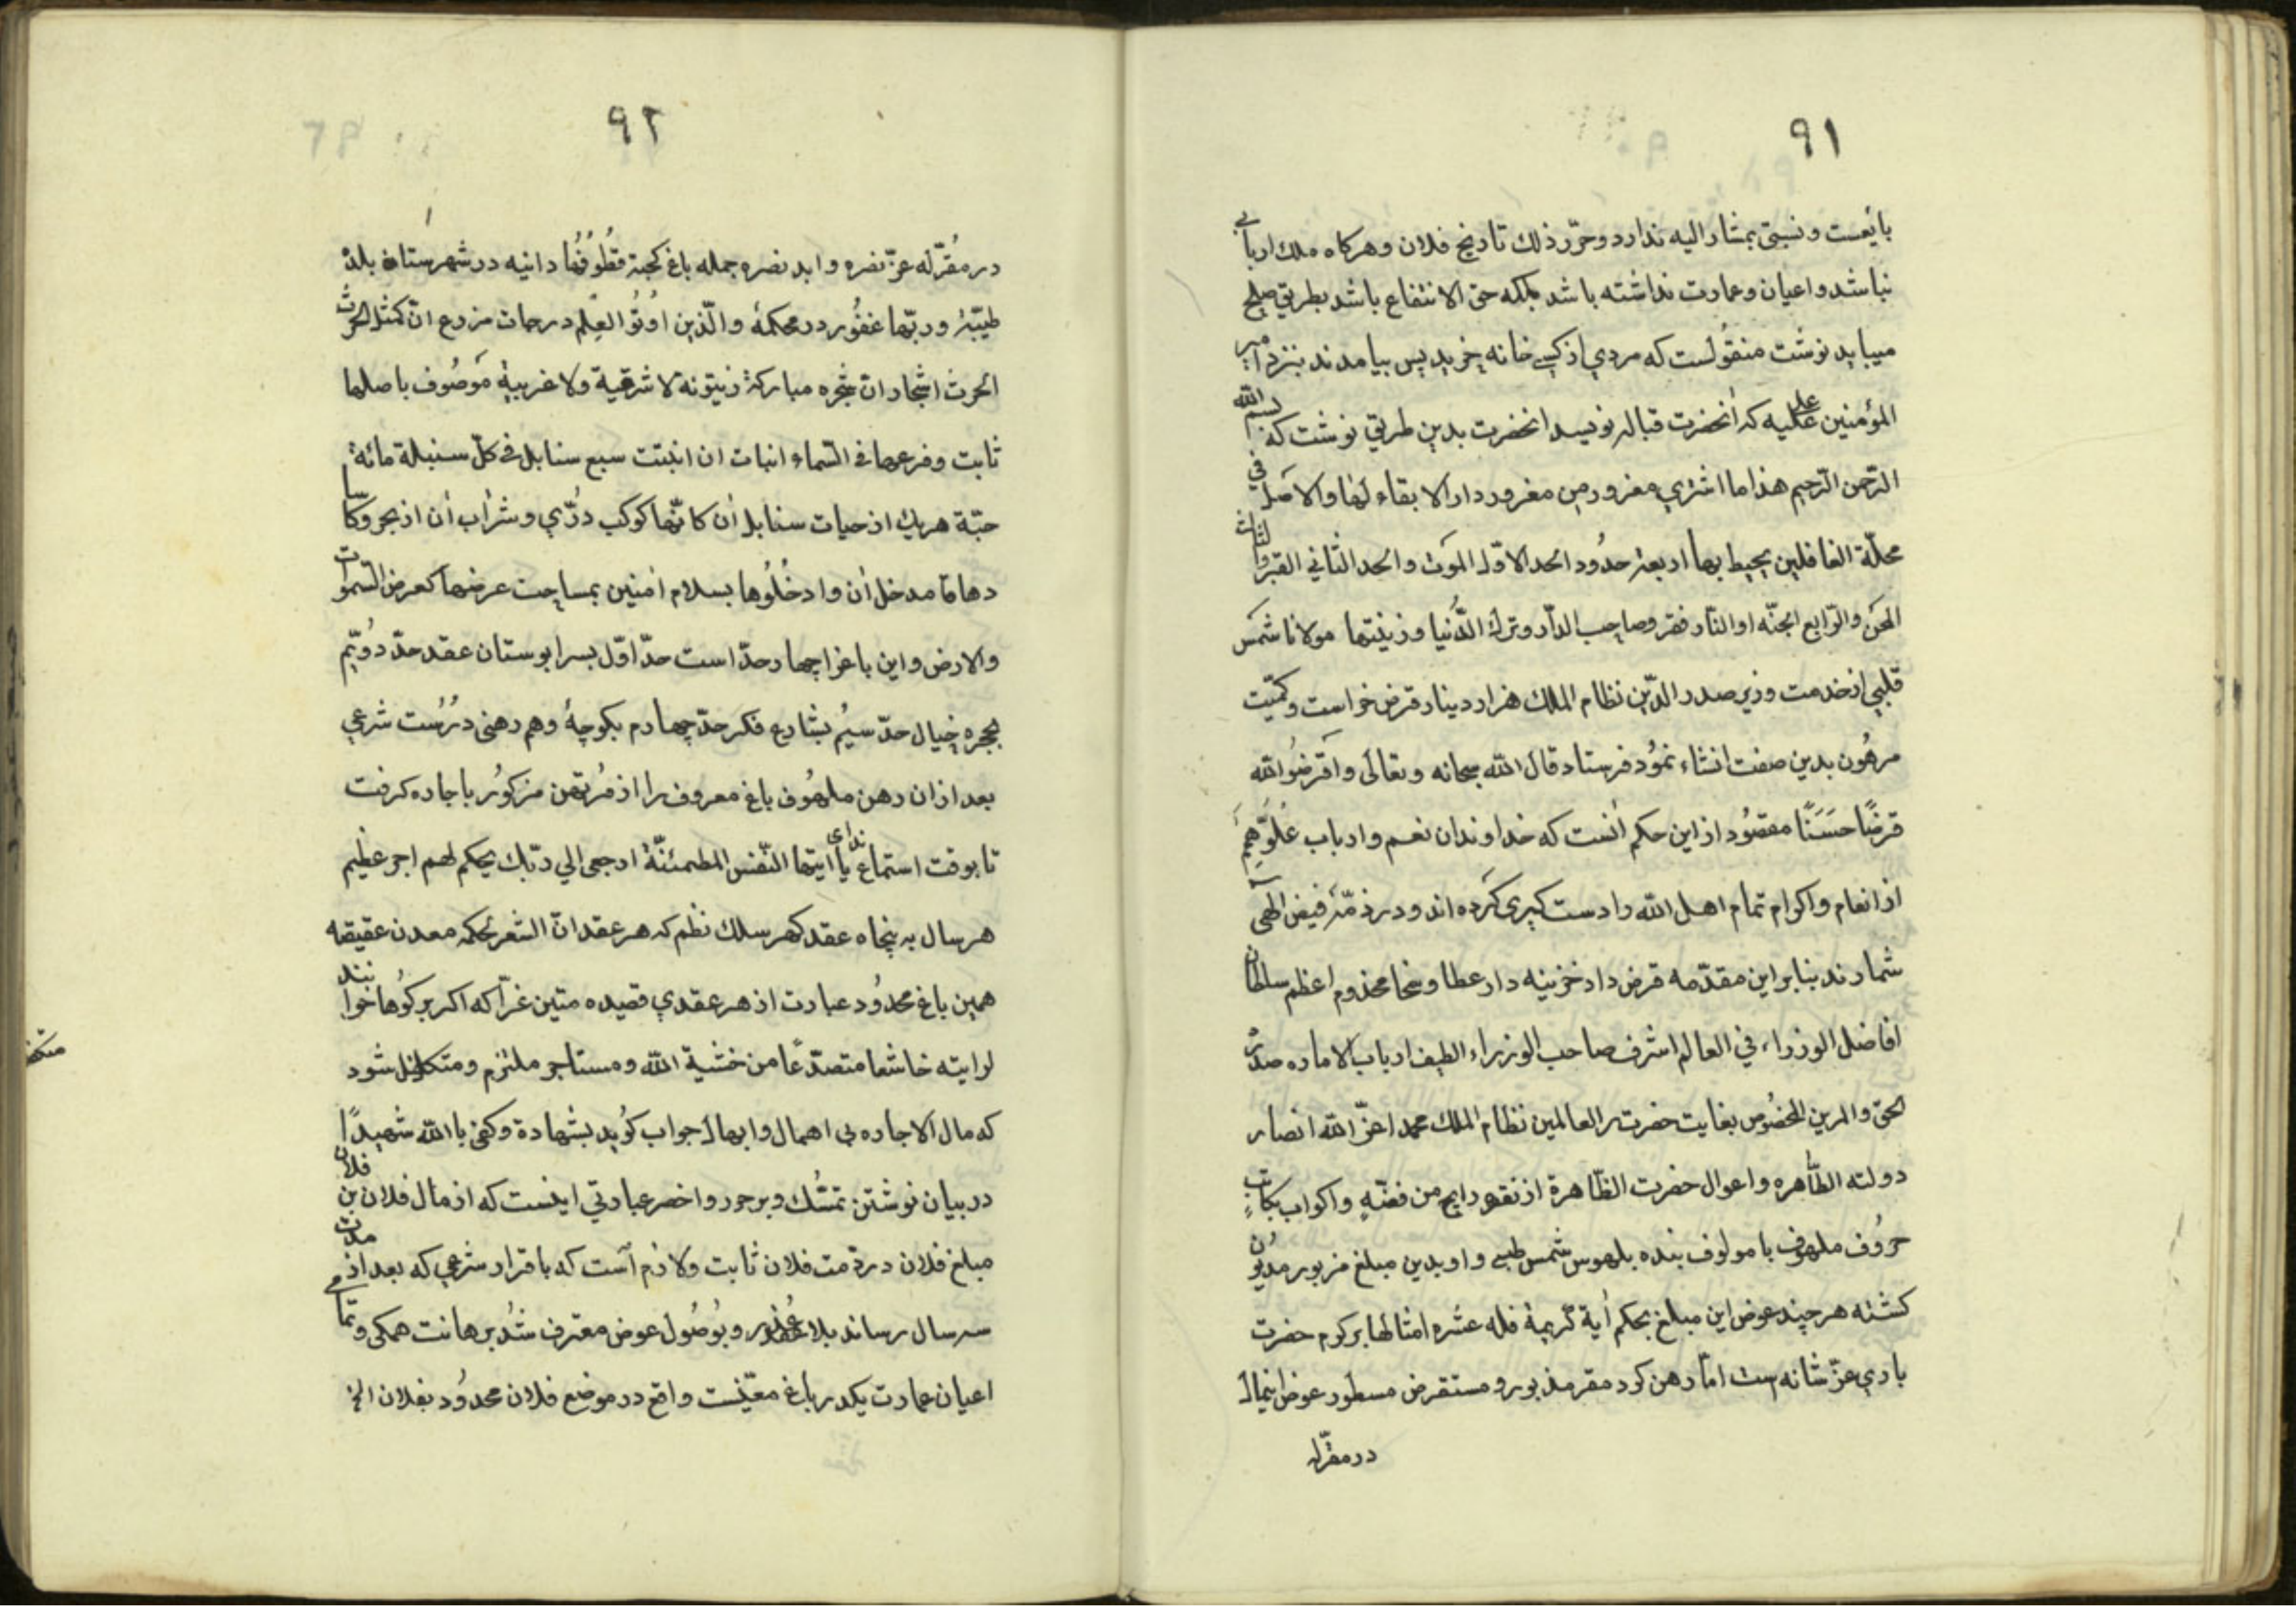 ۹۱
بایعست و نسبتی بمشار الیه ندارد و حرّر ذلك تاریخ فلان و هرکاه ملك اربابی
نباشد و اعیان و عمارت نداشته باشد بلکه حق الانتفاع باشد بطریق صلح
میباید نوشت منقولست که مردی از کسے خانه خرید پس بیامدند بنزد امیر
المؤمنین علیه که آنحضرت قباله نویسد انحضرت بدین طریق نوشت که بسم الله
الرّحمن الرّحیم هذا ما اشتری مغرور من مغرور دار لا بقاء لها و لا اصل فی
محلّة الغافلین یحیط بها اربعة حدُود الحد الاوّل الموت و الحد الثانی القبر و الثالث
المحن و الرّابع الجنّه او النّار فقر و صاحب الدّار و ترك الدُّنیا و زینتها مولانا شمس
قلبی از خدمت وزیر صدر الدّین نظام الملك هزار دینار قرض خواست و کمّیت
مرهُون بدین صفت انشاء نمُود فرستاد قال الله سبحانه و تعالی و اقرضُوا الله
قرضًا حسَنًا مقصُود از این حکم آنست که خداوندان نعم و ارباب علُوّ همم
از انعام و اکرام تمام اهل الله را دست کیری کرده اند و در ذمّه فیض الهی
شمارند بنا بر این مقدّمه قرض داد خزینه دار عطا و سخا مخدوم اعظم سلطان
افاضل الوزراء فی العالم اشرف صاحب الوزراء الطیف ارباب الاماره صدر
الحق و الدین المخصُوص بغایت حضرت رب العالمین نظام الملك محمد اعزّ الله انصار
دولته الطّاهره و اعوال حضرت الظّاهرة از نقد رایج من فضّهٍ و اکواب بکاتب
حرُوف ملهوف با مولوف بنده بلهوس شمس طبسے و او بدین مبلغ مزبور مدیُون
کشته هر چند عوض این مبلغ بحکم آیة کریمة فله عشره امثالها بر کرم حضرت
باری عزّ شانه است امّا رهن کرد مقر مذبور و مستقرض مسطور عوض اینمال
در مقرّله
۹۲
در مُقرّله عزّ نصره و ابد نصره جمله باغ کجنة قطُوفُها دانیه در شهرستان بلدة
طیبّة و ربّها غفُور در محکمهٔ والّذین اوُتُوا العِلم درجات مزرع ان کمثل الحرث
الحرث اشجار ان شجره مبارکة زیتونة لا شرقیة و لا غربیة موصُوف باصلها
ثابت و فرعها فی السّماء انبات ان انبتت سبع سنابل فی کلّ سنبلة مائة
حبّة هریك از حبات سنابل آن کانّها کوکب دُرّی و شراب آن از بحر و کاسا
دهاقا مدخل آن و ادخُلُوها بسلام امنین بمساحت عرضها کعرض السّموات
و الارض و این باغ را چهار حدّ است حدّ اوّل بسرا بوستان عقد حدّ دُویّم
بحجره خیال حدّ سیُم بشارع فکر حدّ چهارم بکوچهٔ و هم رهنی درُست شرعی
بعد از ان رهن ملهُوف باغ معروف را از مُرتهن مزکوُر باجاره کرفت
تا بوقت استماع ندای یا ایتها النّفس المطمئنّة ارجعی الی ربّك بحکم لهم اجر عظیم
هر سال به پنجاه عقد کهر سلك نظم که هر عقد انّ الشعر لحکمه معدن عقیقه
همین باغ محدُود عبارت از هر عقدی قصیده متین غرّا که اکر بر کوُها خوانند
لرایته خاشعا متصدّعًا من خشیة الله و مستاجر ملتزم و متکفل شود
که مال الاجاره بی اهمال و ابهال جواب کوُید بشهادة و کفی بالله شهیدًا
در بیان نوشتن تمسّك و بر جور و اخصر عبارتی اینست که از مال فلان بن فلان
مبلغ فلان در ذمت فلان ثابت و لازم است که باقرار شرعی که بعد از مدت
سه سال رساند بلا عُذر و بوُصُول عوض معترف شُد برهانت همکی و تمامی
اعیان عمارت یکدر باغ معیّنست واقع در موضع فلان محدُود بفلان الخ